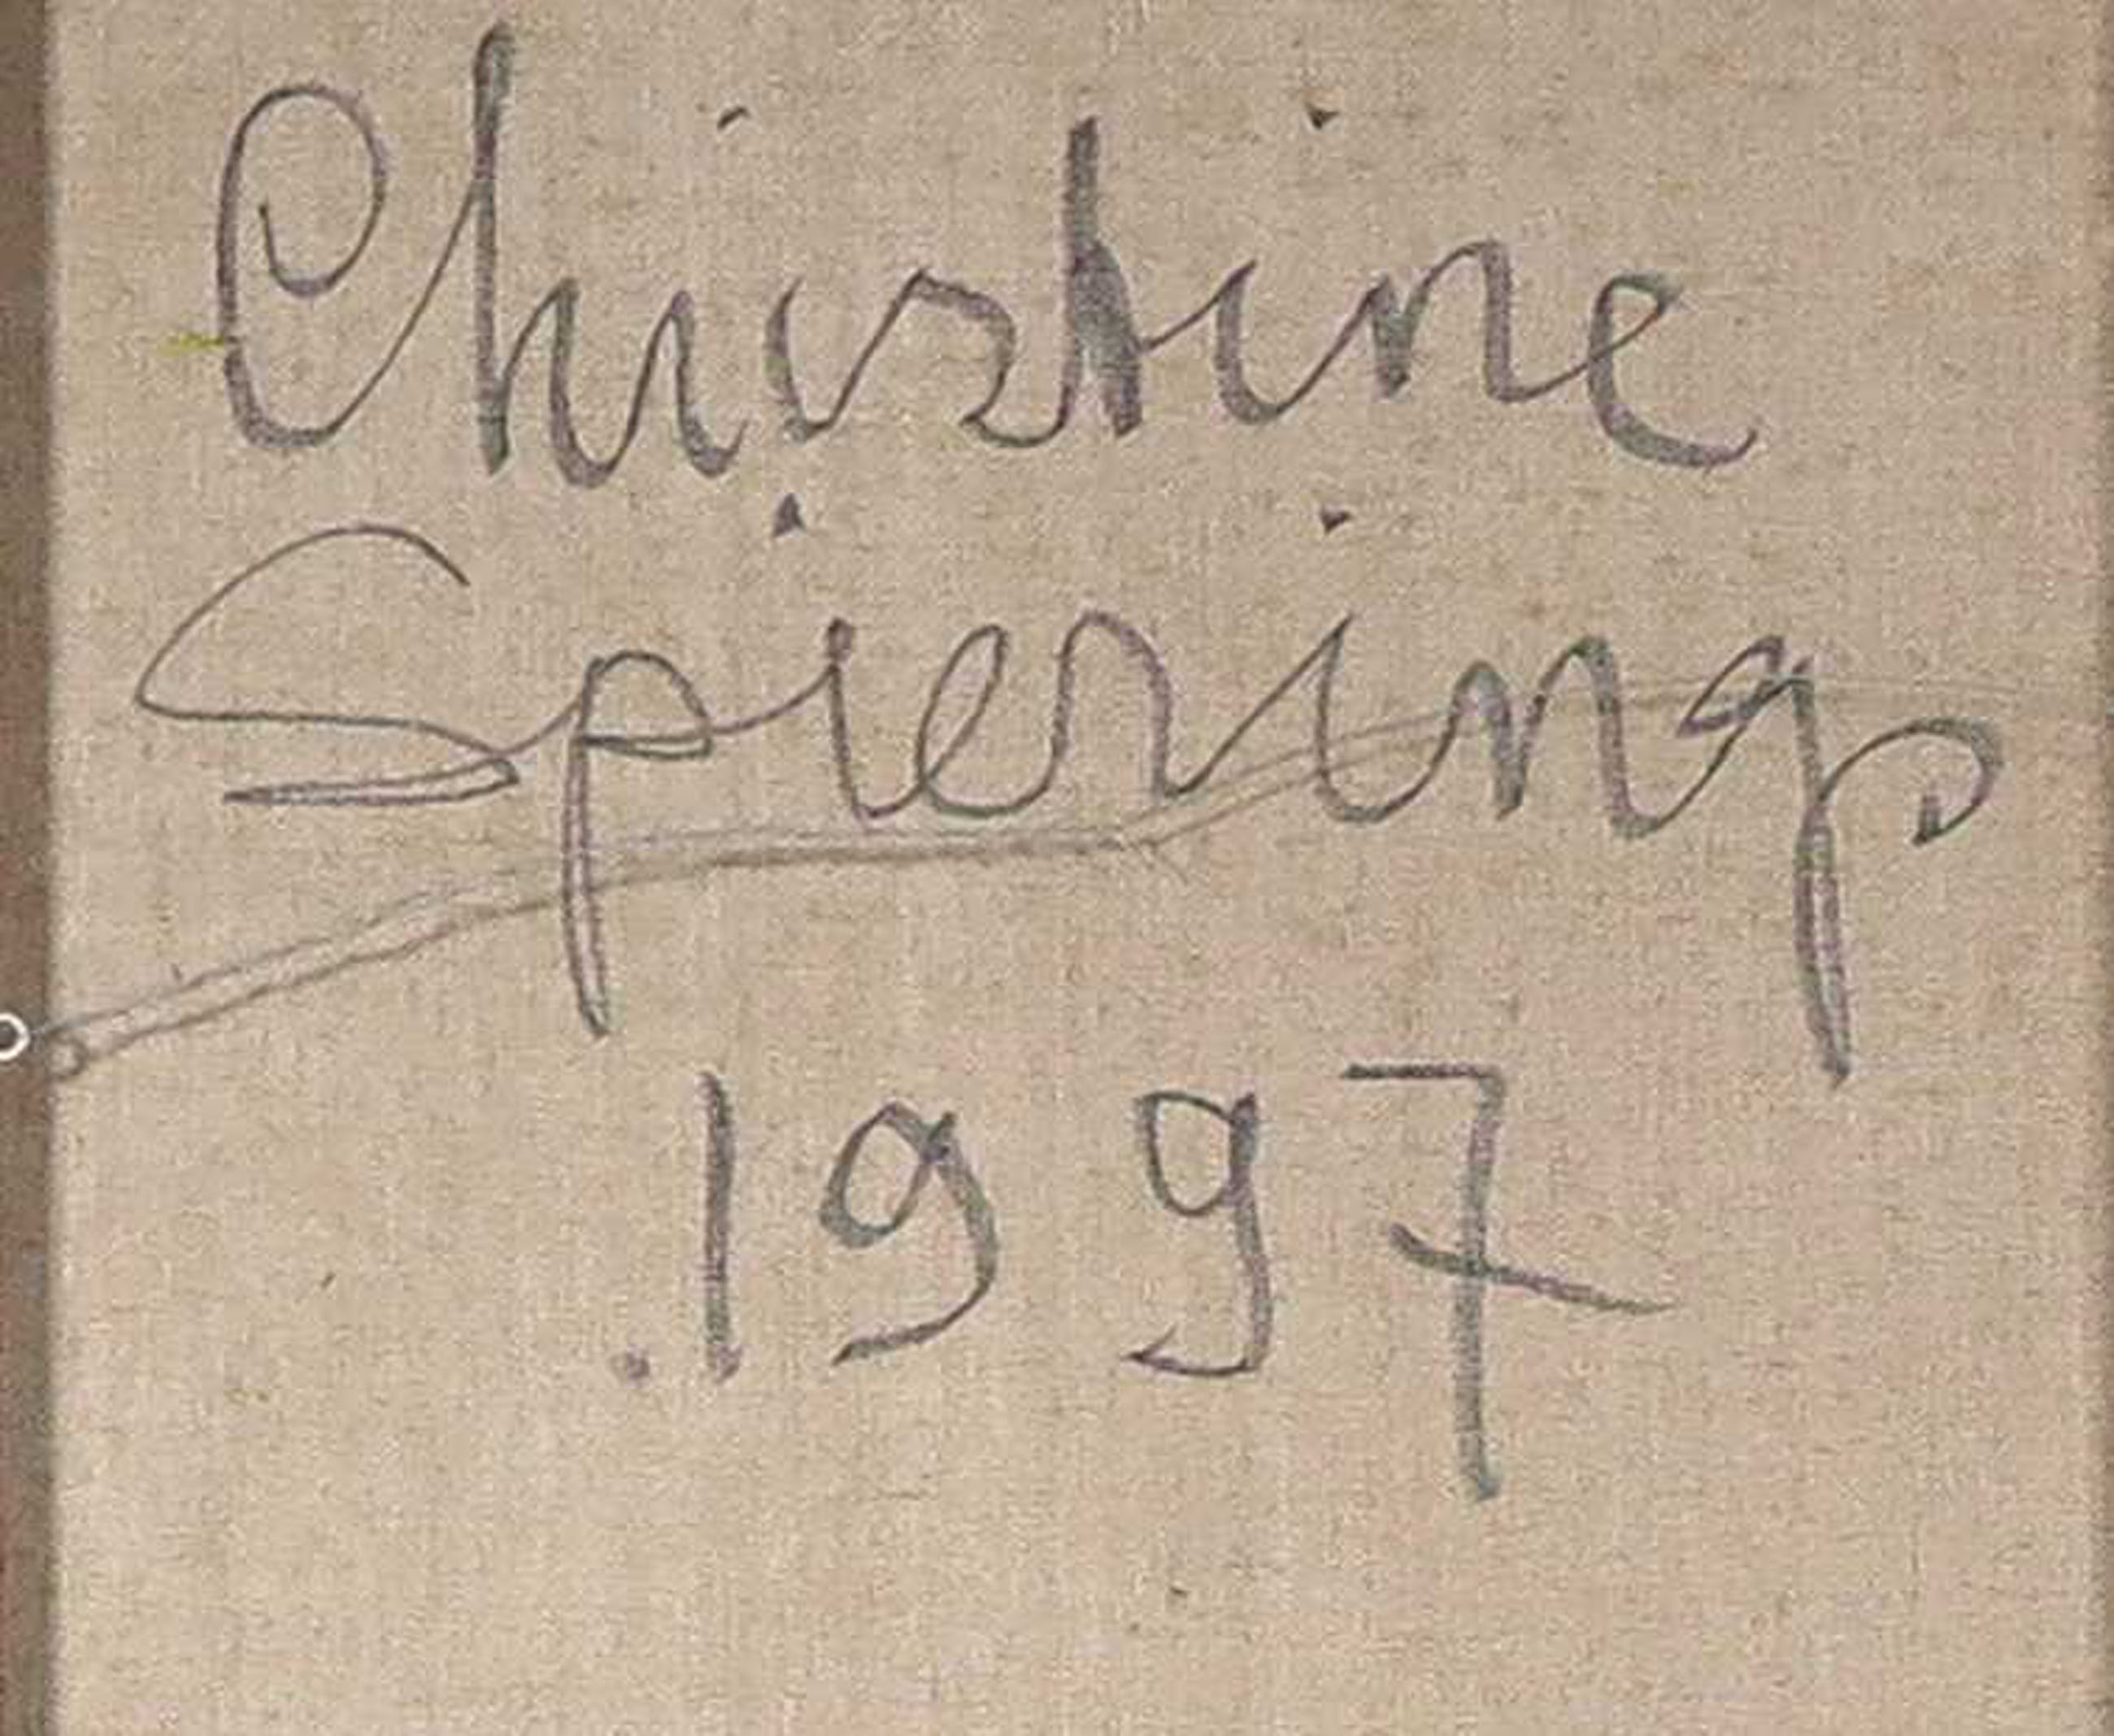 Christine
Spiering
.1997